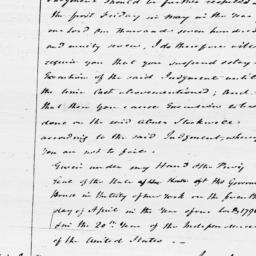 Judgment should be further respited
the first Friday in May in the Year
our Lord One thousand seven hundred
and ninety seven, I do therefore
require you that you suspend delay
Execution of the said Judgment until
the time last abovementioned; And
that then you cause Execution to be
done on the said Stockwell
according to the said Judgment, where
you are not to fail.
Given under my Hand & the Privy
Seal of the State at the House of the Government
House in the City of New York on the
day of April in the Year of our Lord 179
& in the 20th Year of the Independence
of the United States.